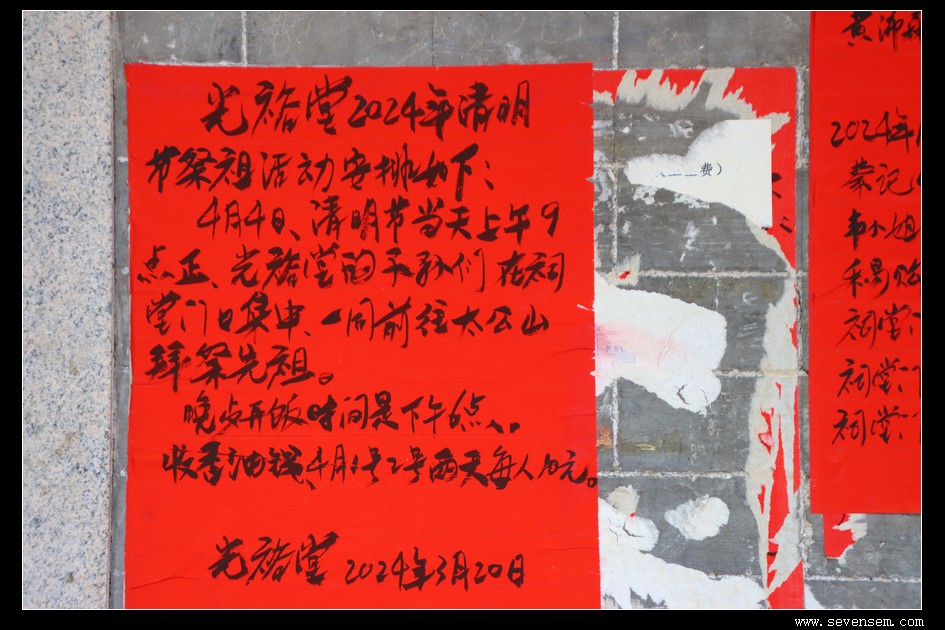 光裕堂2024年清明
节祭祖活动安排如下：
4月4日、清明节当天上午9
点正、光裕堂的子孙们在祠
堂门口集中、一同前往太公山
拜祭先祖。
晚上开饭时间是下午6点、。
收香油钱、4月1号2号两天每人10元。
光裕堂 2024年3月20日
费）
2024年
蒙记
韦小姐
祠堂
祠堂
祠堂
www.sevensem.com